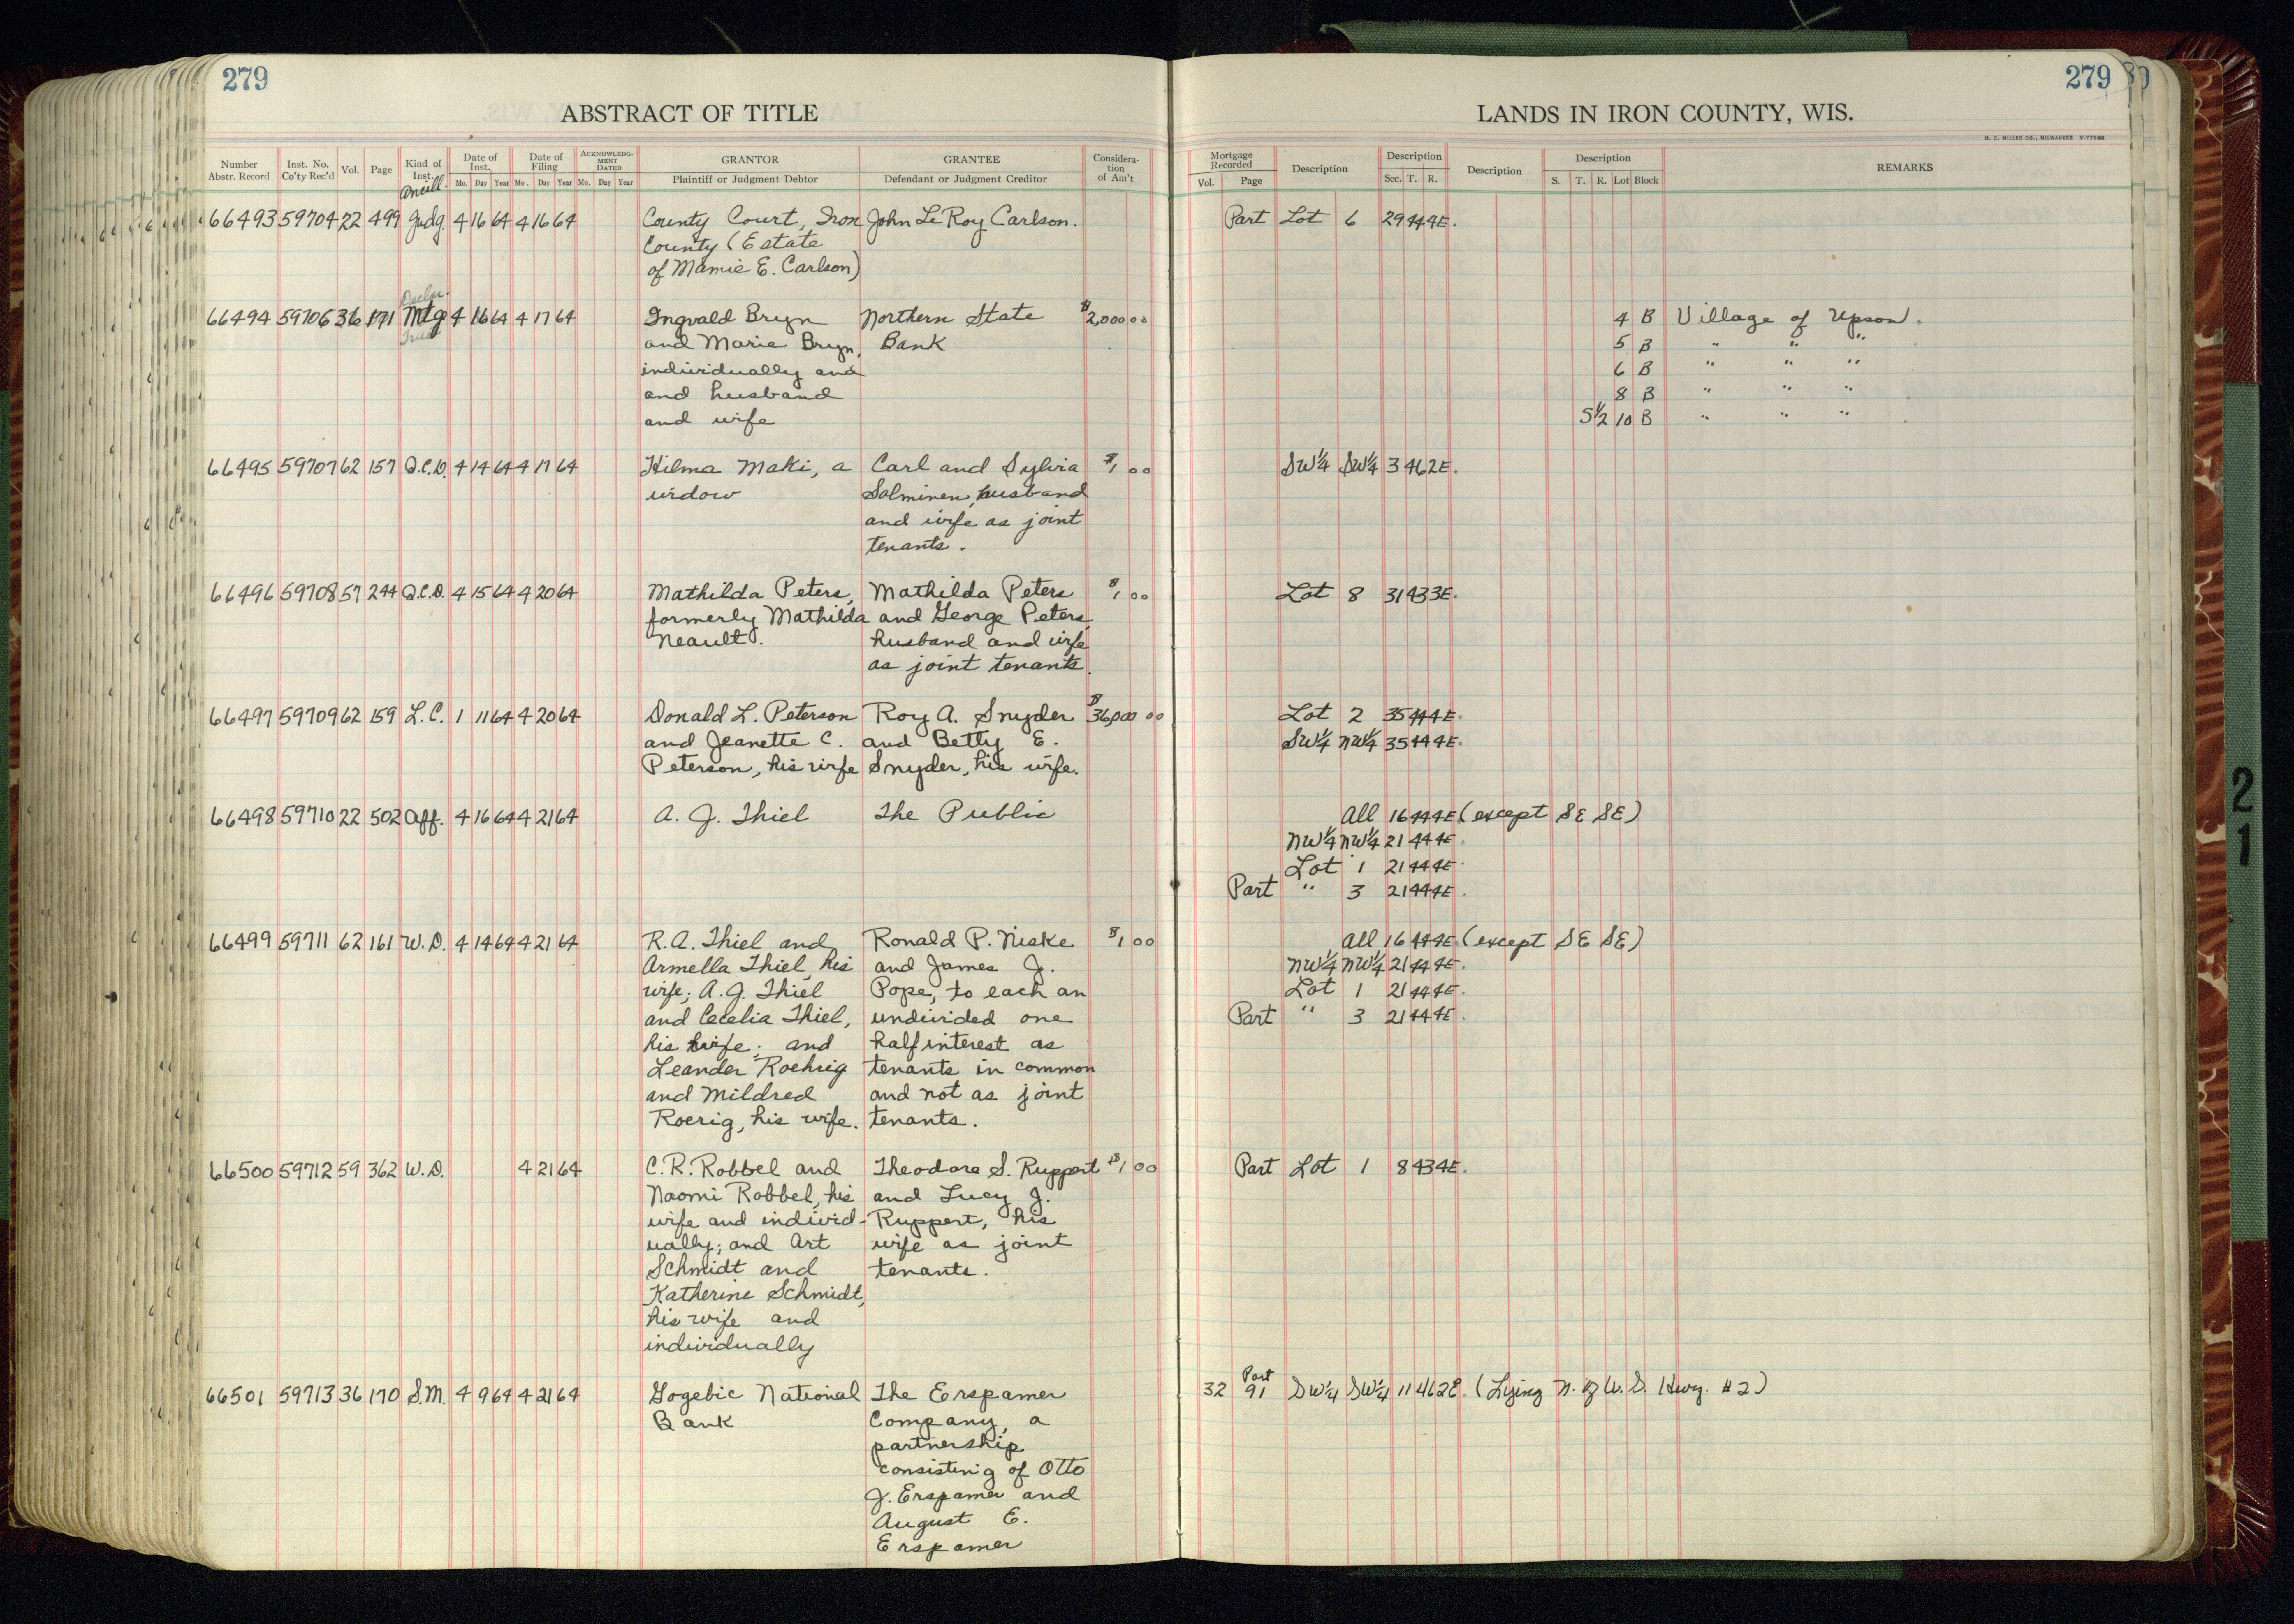 279
279
ABSTRACT OF TITLE
LANDS IN IRON COUNTY, WIS.
H. C. MILLER CO., MILWAUKEE
Number Abstr. Record | Inst. No. Co'ty Rec'd | Vol. | Page | Kind of Inst. | Date of Inst. Mo. Day Year | Date of Filing Mo. Day Year | ACKNOWLEDGMENT DATED Mo. Day Year | GRANTOR Plaintiff or Judgment Debtor | GRANTEE Defendant or Judgment Creditor | Consideration of Am't | Mortgage Recorded Vol. Page | Description | Description Sec. T. R. | Description | Description S. T. R. Lot Block | REMARKS
Ancill.
66493 59704 22 499 Judg. 4 16 64 4 16 64 County Court, Iron John Le Roy Carlson. Part Lot 6 29 44 4E.
County (Estate
of Mamie E. Carlson)
66494 59706 36 171 Mtge 4 16 64 4 17 64 Ingvald Bryn Northern State $2,000 00 4 B Village of Upson.
and Marie Bryn, Bank 5 B " " "
individually and 6 B " " "
and husband 8 B " " "
and wife S1/2 10 B " " "
66495 59707 62 157 Q.C.D. 4 14 64 4 17 64 Hilma Maki, a Carl and Sylvia $1 00 SW1/4 SW1/4 3 46 2E.
widow Salminen, husband
and wife as joint
tenants.
66496 59708 57 244 Q.C.D. 4 15 64 4 20 64 Mathilda Peters, Mathilda Peters $1 00 Lot 8 31 43 3E.
formerly Mathilda and George Peters,
Neault. husband and wife
as joint tenants.
66497 59709 62 159 L.C. 1 11 64 4 20 64 Donald L. Peterson Roy A. Snyder $36,000 00 Lot 2 35 44 4E.
and Jeanette C. and Betty E. SW1/4 NW1/4 35 44 4E.
Peterson, his wife Snyder, his wife.
66498 59710 22 502 Aff. 4 16 64 4 21 64 A. J. Thiel The Public All 16 44 4E (except SE SE)
NW1/4 NW1/4 21 44 4E.
Lot 1 21 44 4E.
Part " 3 21 44 4E.
66499 59711 62 161 W.D. 4 14 64 4 21 64 R. A. Thiel and Ronald P. Niske $1 00 All 16 44 4E. (except SE SE)
Armella Thiel, his and James J. NW1/4 NW1/4 21 44 4E.
wife; A. J. Thiel Pope, to each an Lot 1 21 44 4E.
and Cecelia Thiel, undivided one Part " 3 21 44 4E.
his wife; and half interest as
Leander Roehrig tenants in common
and Mildred and not as joint
Roerig, his wife. tenants.
66500 59712 59 362 W.D. 4 21 64 C. R. Robbel and Theodore S. Ruppert $1 00 Part Lot 1 8 43 4E.
Naomi Robbel, his and Lucy J.
wife and individ- Ruppert, his
ually; and Art wife as joint
Schmidt and tenants.
Katherine Schmidt,
his wife and
individually
66501 59713 36 170 S.M. 4 9 64 4 21 64 Gogebic National The Erspamer 32 91 Part SW1/4 SW1/4 11 46 2E. (Lying N. of U. S. Hwy. #2)
Bank Company, a
partnership
consisting of Otto
J. Erspamer and
August E.
Erspamer
21